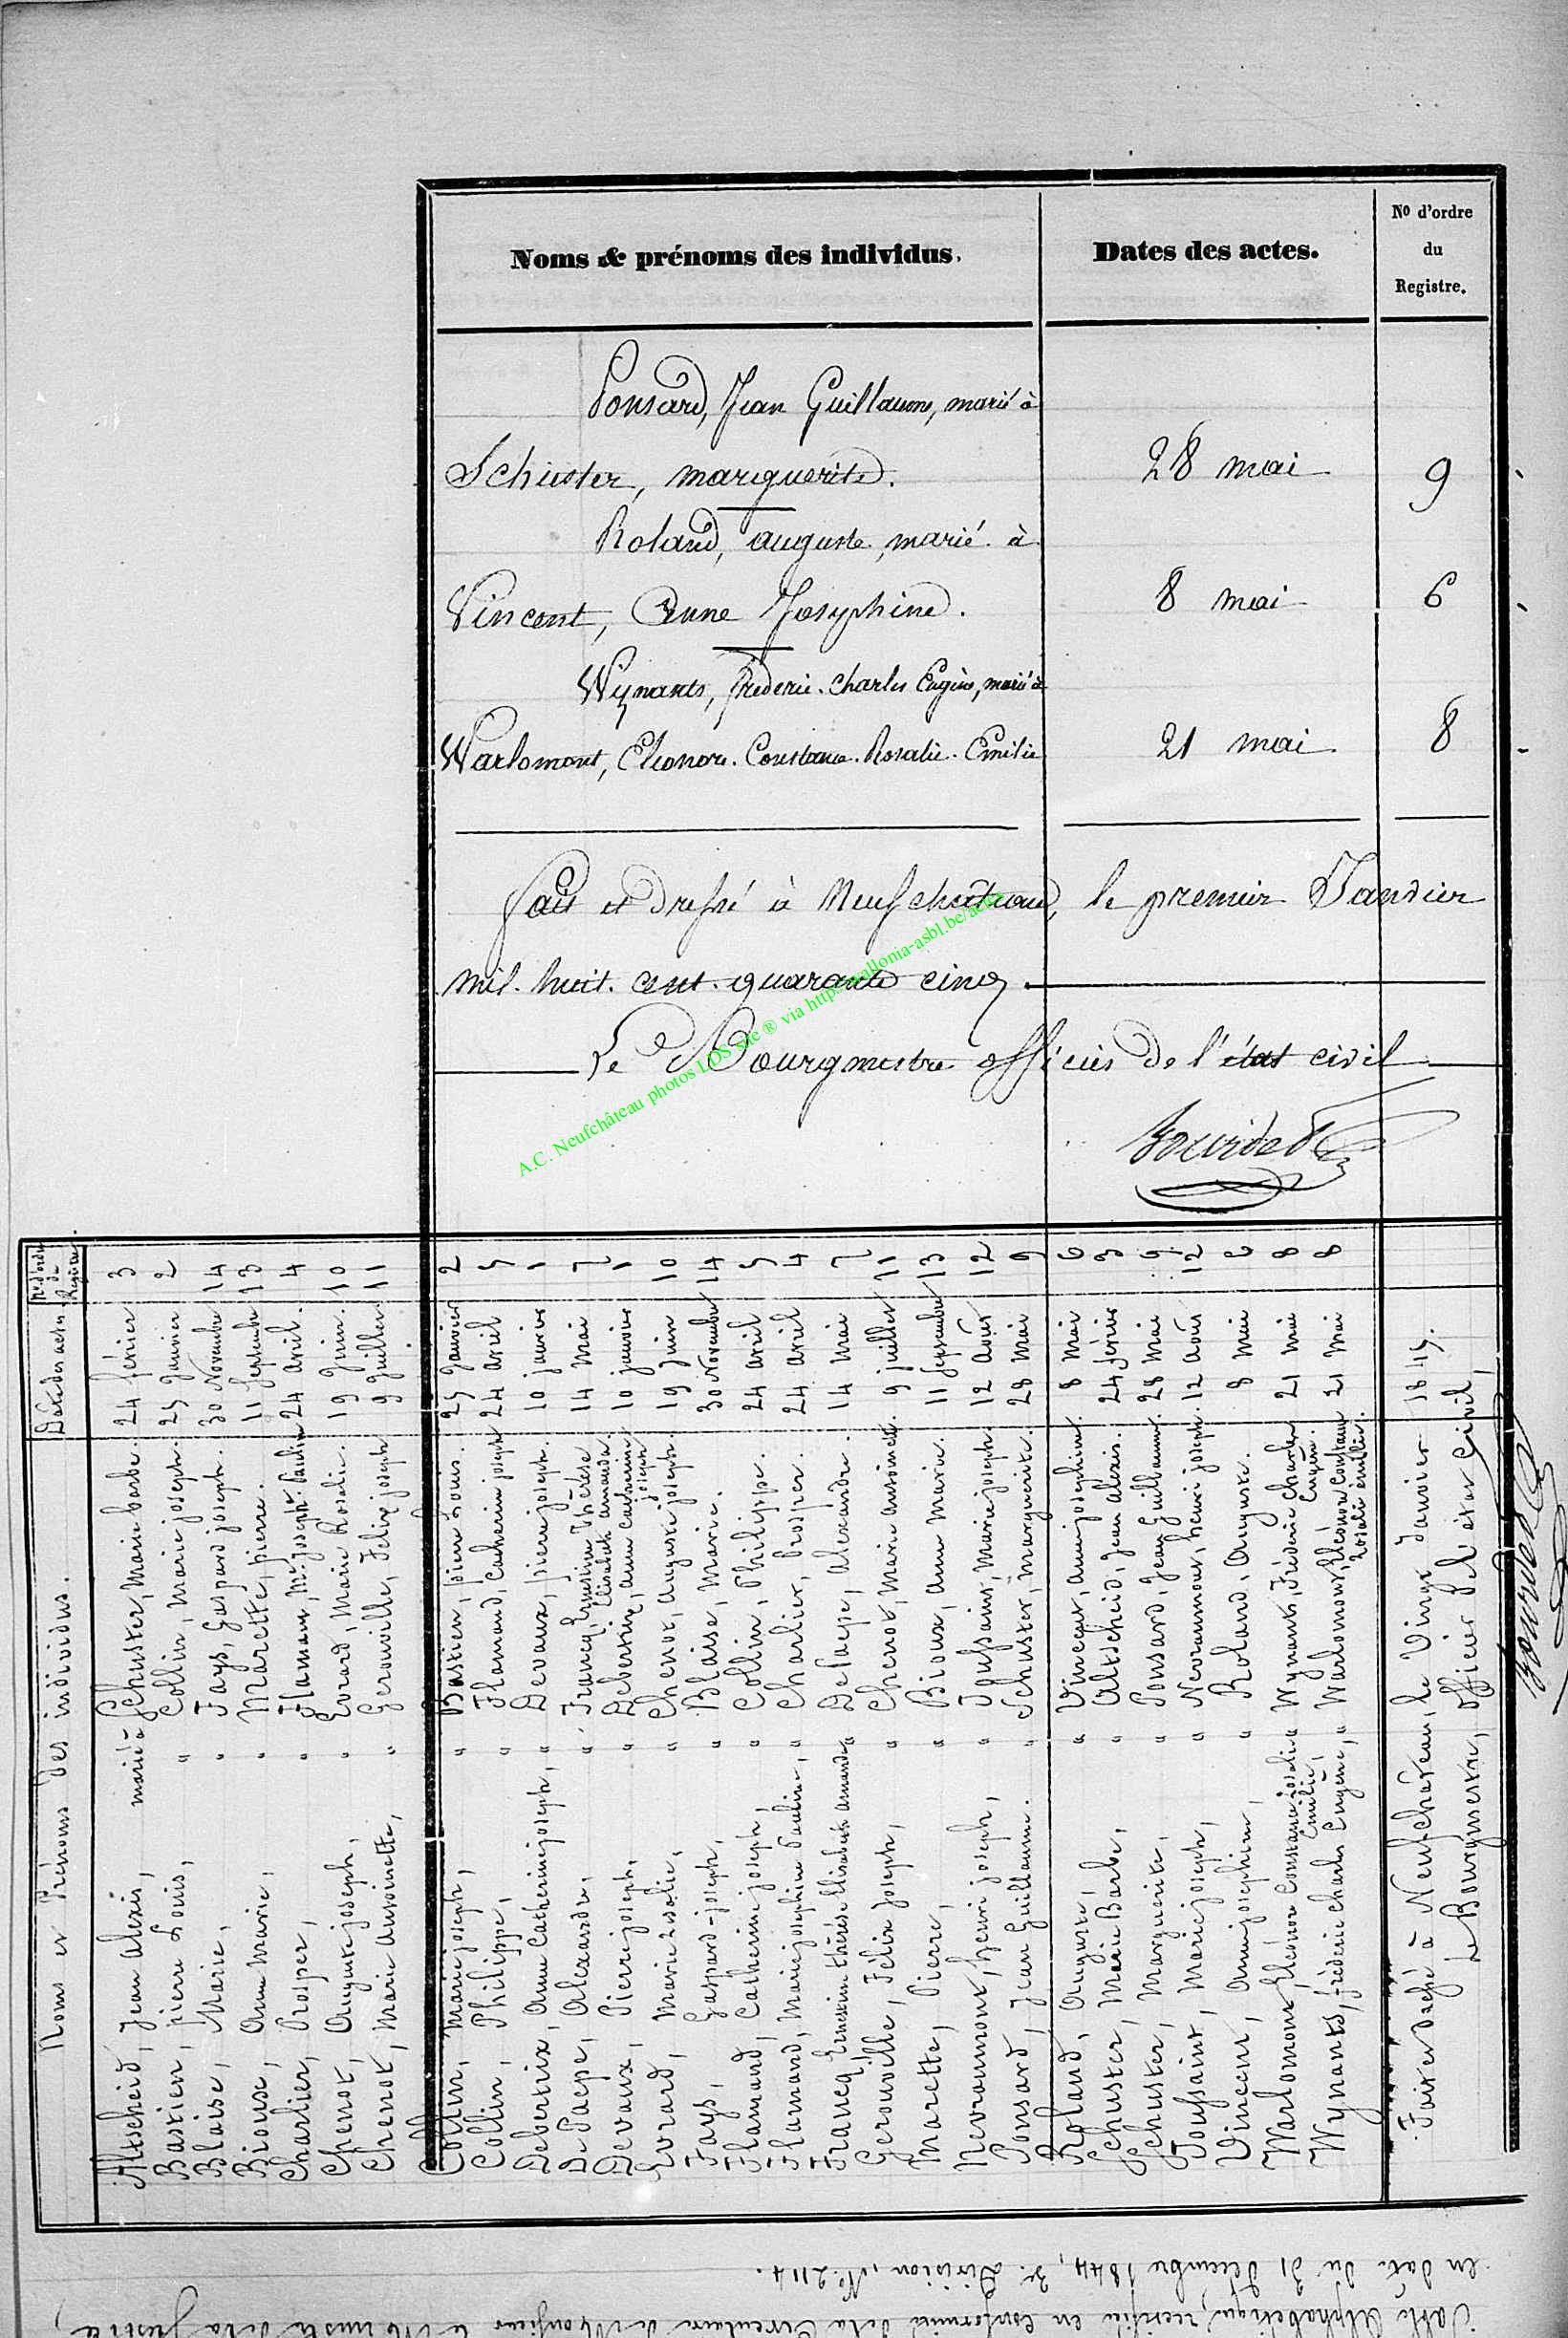 Noms & prénoms des individus.
Dates des actes.
No d'ordre
du
Registre.
Ponsard, Jean Guillaume, marié à
Schuster, marguerite. 28 mai 9
Roland, auguste, marié à
Vincent, Anne Josephine. 8 mai 6
Wynants, frederic. charles Eugène, marié à
Warlomont, Eléonore. Constance. Rosalie. Emilie 21 mai 8
fait et dressé à Neufchateau, le premier Janvier
mil. huit. cent. quarante cinq
Le Bourgmestre officier de l'état civil
Bourdet
A.C. Neufchâteau photos LDS site ® via https:wallonia-asbl.be/actes
Noms et Prénoms des individus. Dates des actes No. d'ordre du Registre.
Altscheid, Jean alexis, marié à Schuster, Marie barbe. 24 février 3
Bastien, pierre Louis, " Collin, Marie joseph. 25 Janvier 2
Blaise, Marie, " Fays, Gaspard joseph. 30 Novembre 14
Bioux, Anne Marie, " Marette, pierre. 11 Septembre 13
Charlier, Prosper, " Flamand, Mie joseph. Pauline 24 avril. 4
Chenot, Auguste joseph, " Evrard, Marie Rosalie. 19 Juin. 10
Chenot, Marie Antoinette, " Gerouville, Felix joseph 9 Juillet 11
Collin, Marie joseph, " Bastien, pierre Louis. 25 Janvier 2
Collin, Philippe, " Flamand, Catherine joseph 24 avril 5
Debertrix, Anne Catherine joseph, " Devaux, pierre joseph. 10 janvier 1
De Paepe, Alexandre, " Francq, Ernestine Thérèse Elisabeth amanda. 14 Mai 7
Devaux, Pierre joseph, " Debertrix, anne Catherine joseph 10 janvier 1
Evrard, Marie Rosalie, " Chenot, Auguste joseph. 19 Juin 10
Fays, Gaspard-joseph, " Blaise, Marie. 30 Novembre 14
Flamand, Catherine joseph, " Collin, Philippe. 24 avril 5
Flamand, Marie josephine Pauline, " Charlier, Prosper. 24 avril 4
Francq, Ernestine thérèse Elisabeth amanda " De Paepe, Alexandre. 14 Mai 7
Gerouville, Félix Joseph, " Chenot, Marie antoinette. 9 juillet 11
Marette, Pierre, " Bioux, Anne Marie. 11 Septembre 13
Nevraumont, henri joseph, " Toussaint, Marie joseph 12 Août 12
Ponsard, Jean Guillaume. " Schuster, Marguerite. 28 Mai 9
Roland, Auguste, " Vincent, Anne josephine. 8 Mai 6
Schuster, Marie Barbe, " Altscheid, Jean alexis. 24 février 3
Schuster, Marguerite, " Ponsard, Jean Guillaume. 28 Mai 9
Toussaint, Marie joseph, " Nevraumont, henri joseph. 12 Août 12
Vincent, Anne josephine, " Roland, Auguste. 8 Mai 6
Warlomont, Eléonore Constance rosalie Emilie, " Wynants, Fréderic Charles Eugène. 21 Mai 8
Wynants, fréderic Charles Eugène, " Warlomont, Eléonore Constance rosalie émilie. 21 Mai 8
Fait et dressé à Neufchateau, le Vingt Janvier 1845.
Le Bourgmestre, officier de l'état Civil,
Bourdet
Table Alphabétique, rectifiée en conformité de la Circulaire de Monsieur le Ministre de la Justice,
en date du 31 décembre 1844, 3e. Division, No. 2114.